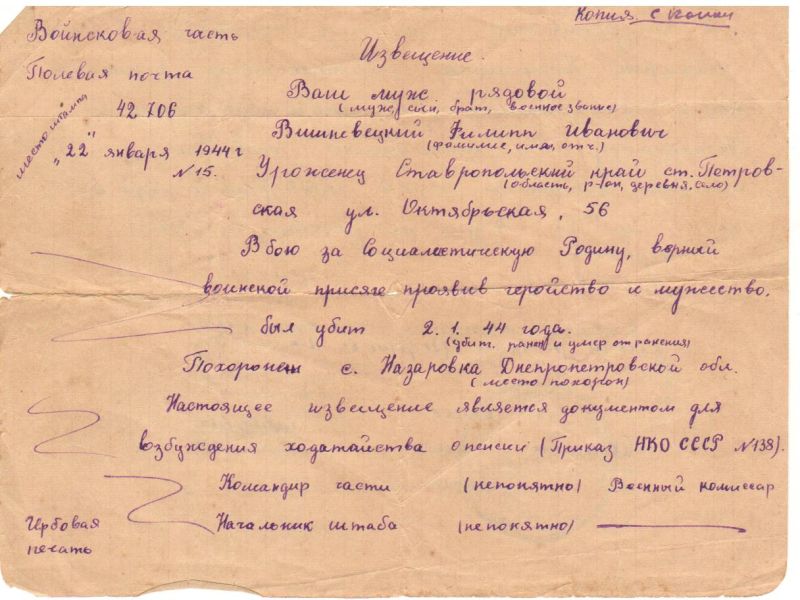 Копия с копии
Войсковая часть
Извещение.
Полевая почта
42706
место штампа
"22" января 1944 г
N 15.
Ваш муж рядовой
(муж, сын, брат, военное звание)
Вишневецкий Филипп Иванович
(фамилие, имя, отч.)
Уроженец Ставропольский край ст. Петров-
(область, р-он, деревня, село)
ская ул. Октябрьская, 56
В бою за Социалистическую Родину, верный
воинской присяге проявив геройство и мужество,
был убит 2. 1. 44 года.
(убит. ранен и умер от ранения)
Похоронен с. Назаровка Днепропетровской обл.
(место похорон)
Настоящее извещение является документом для
возбуждения ходатайства о пенсии (Приказ НКО СССР N 138).
Командир части (непонятно) Военный комиссар
Начальник штаба (непонятно)
Гербовая
печать